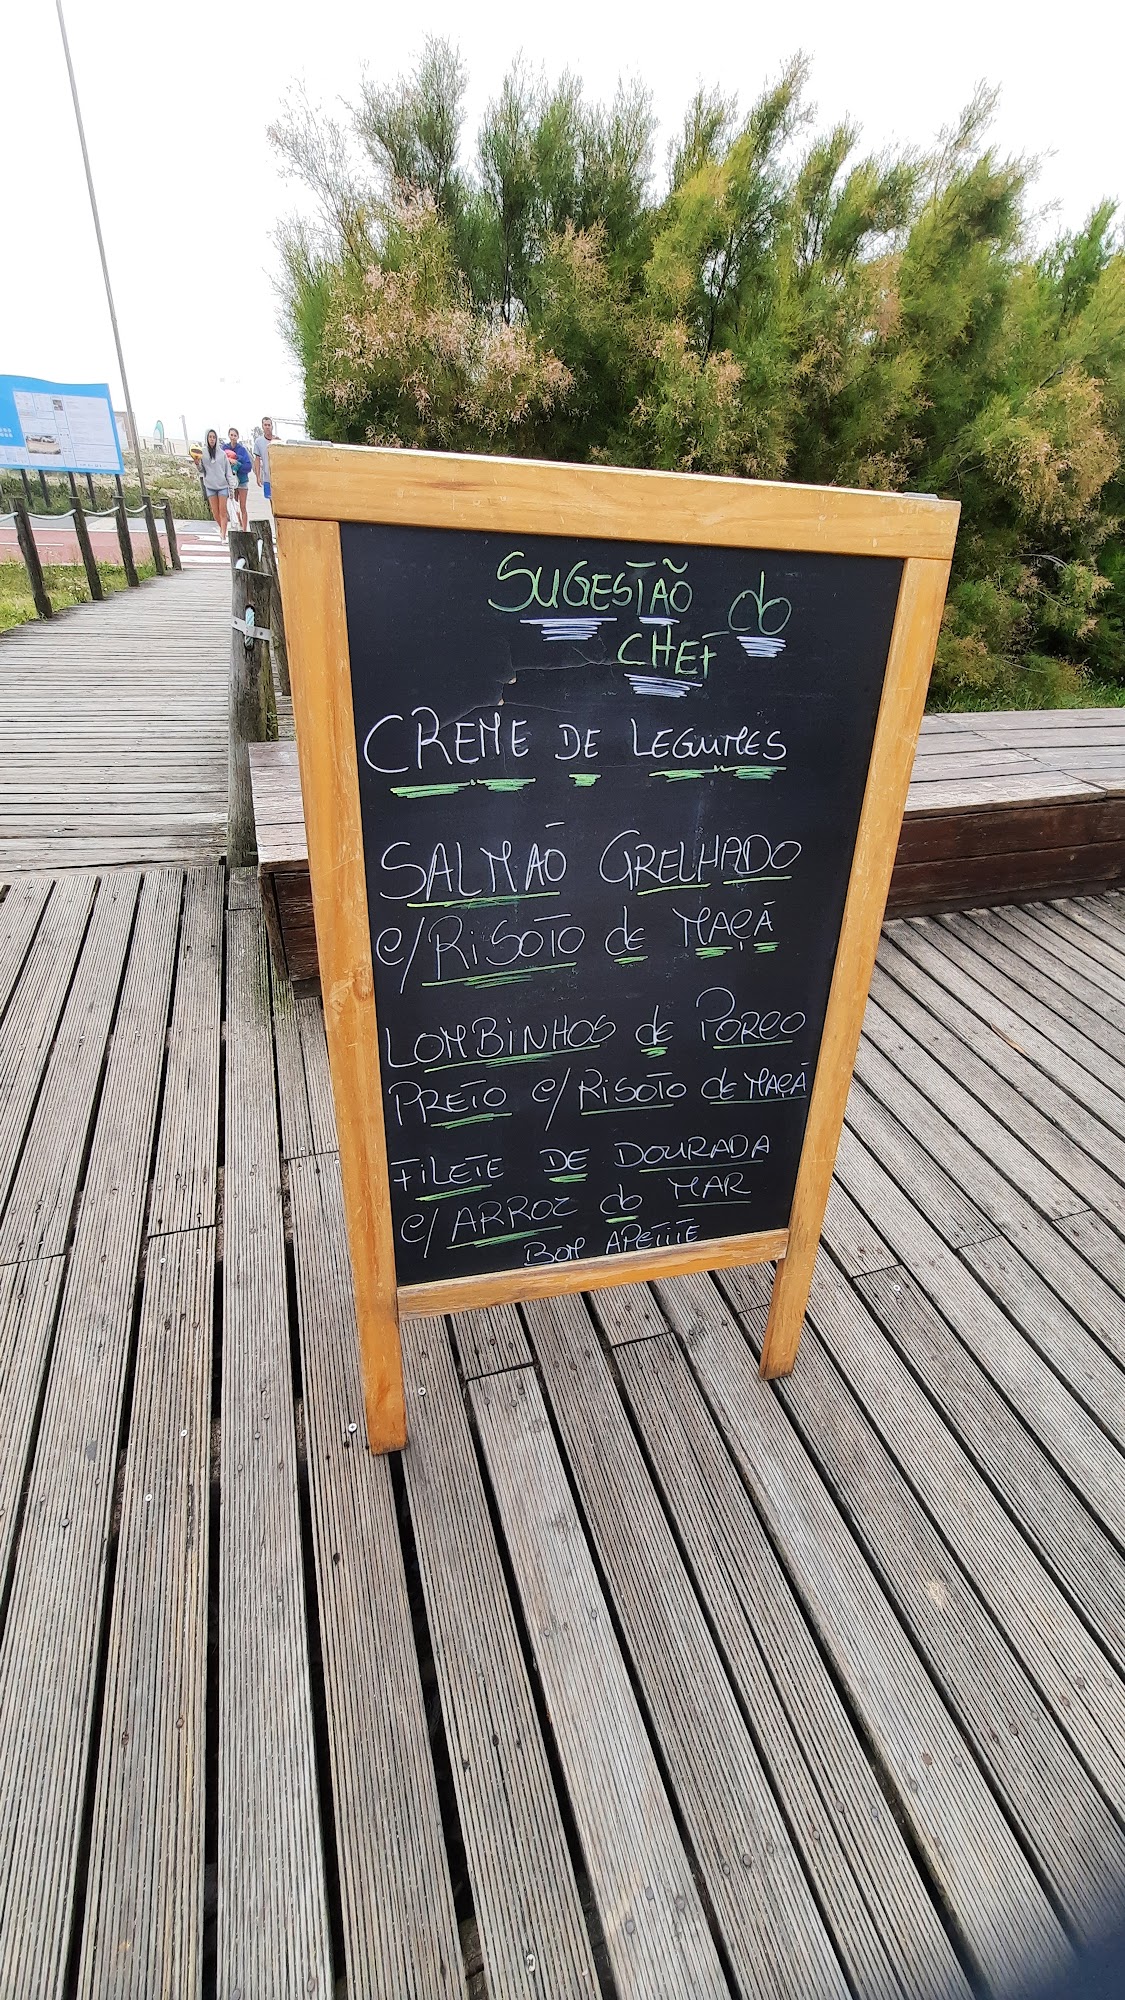 SUGESTÃO do
CHEF
CREME DE LEGUMES
SALMÃO GRELHADO
c/ RISOTO de MAÇÃ
LOMBINHOS de PORCO
PRETO c/ RISOTO de MAÇÃ
FILETE DE DOURADA
c/ ARROZ do MAR
BOM APETITE